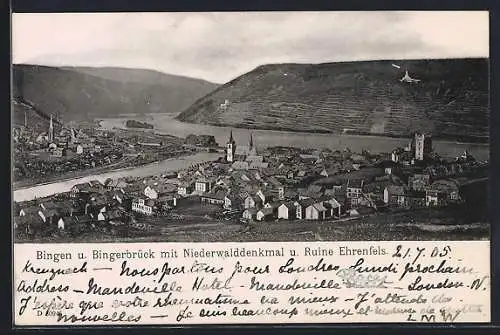 Bingen u. Bingerbrück mit Niederwalddenkmal u. Ruine Ehrenfels. 21.7.05
Kreuznach - Nous partons pour Londres Lundi prochain
Address - Mandeville Hotel - Mandeville - London-W.
J'espère que votre rhumatisme va mieux - J'attends de
nouvelles - Je suis beaucoup mieux et
L M W